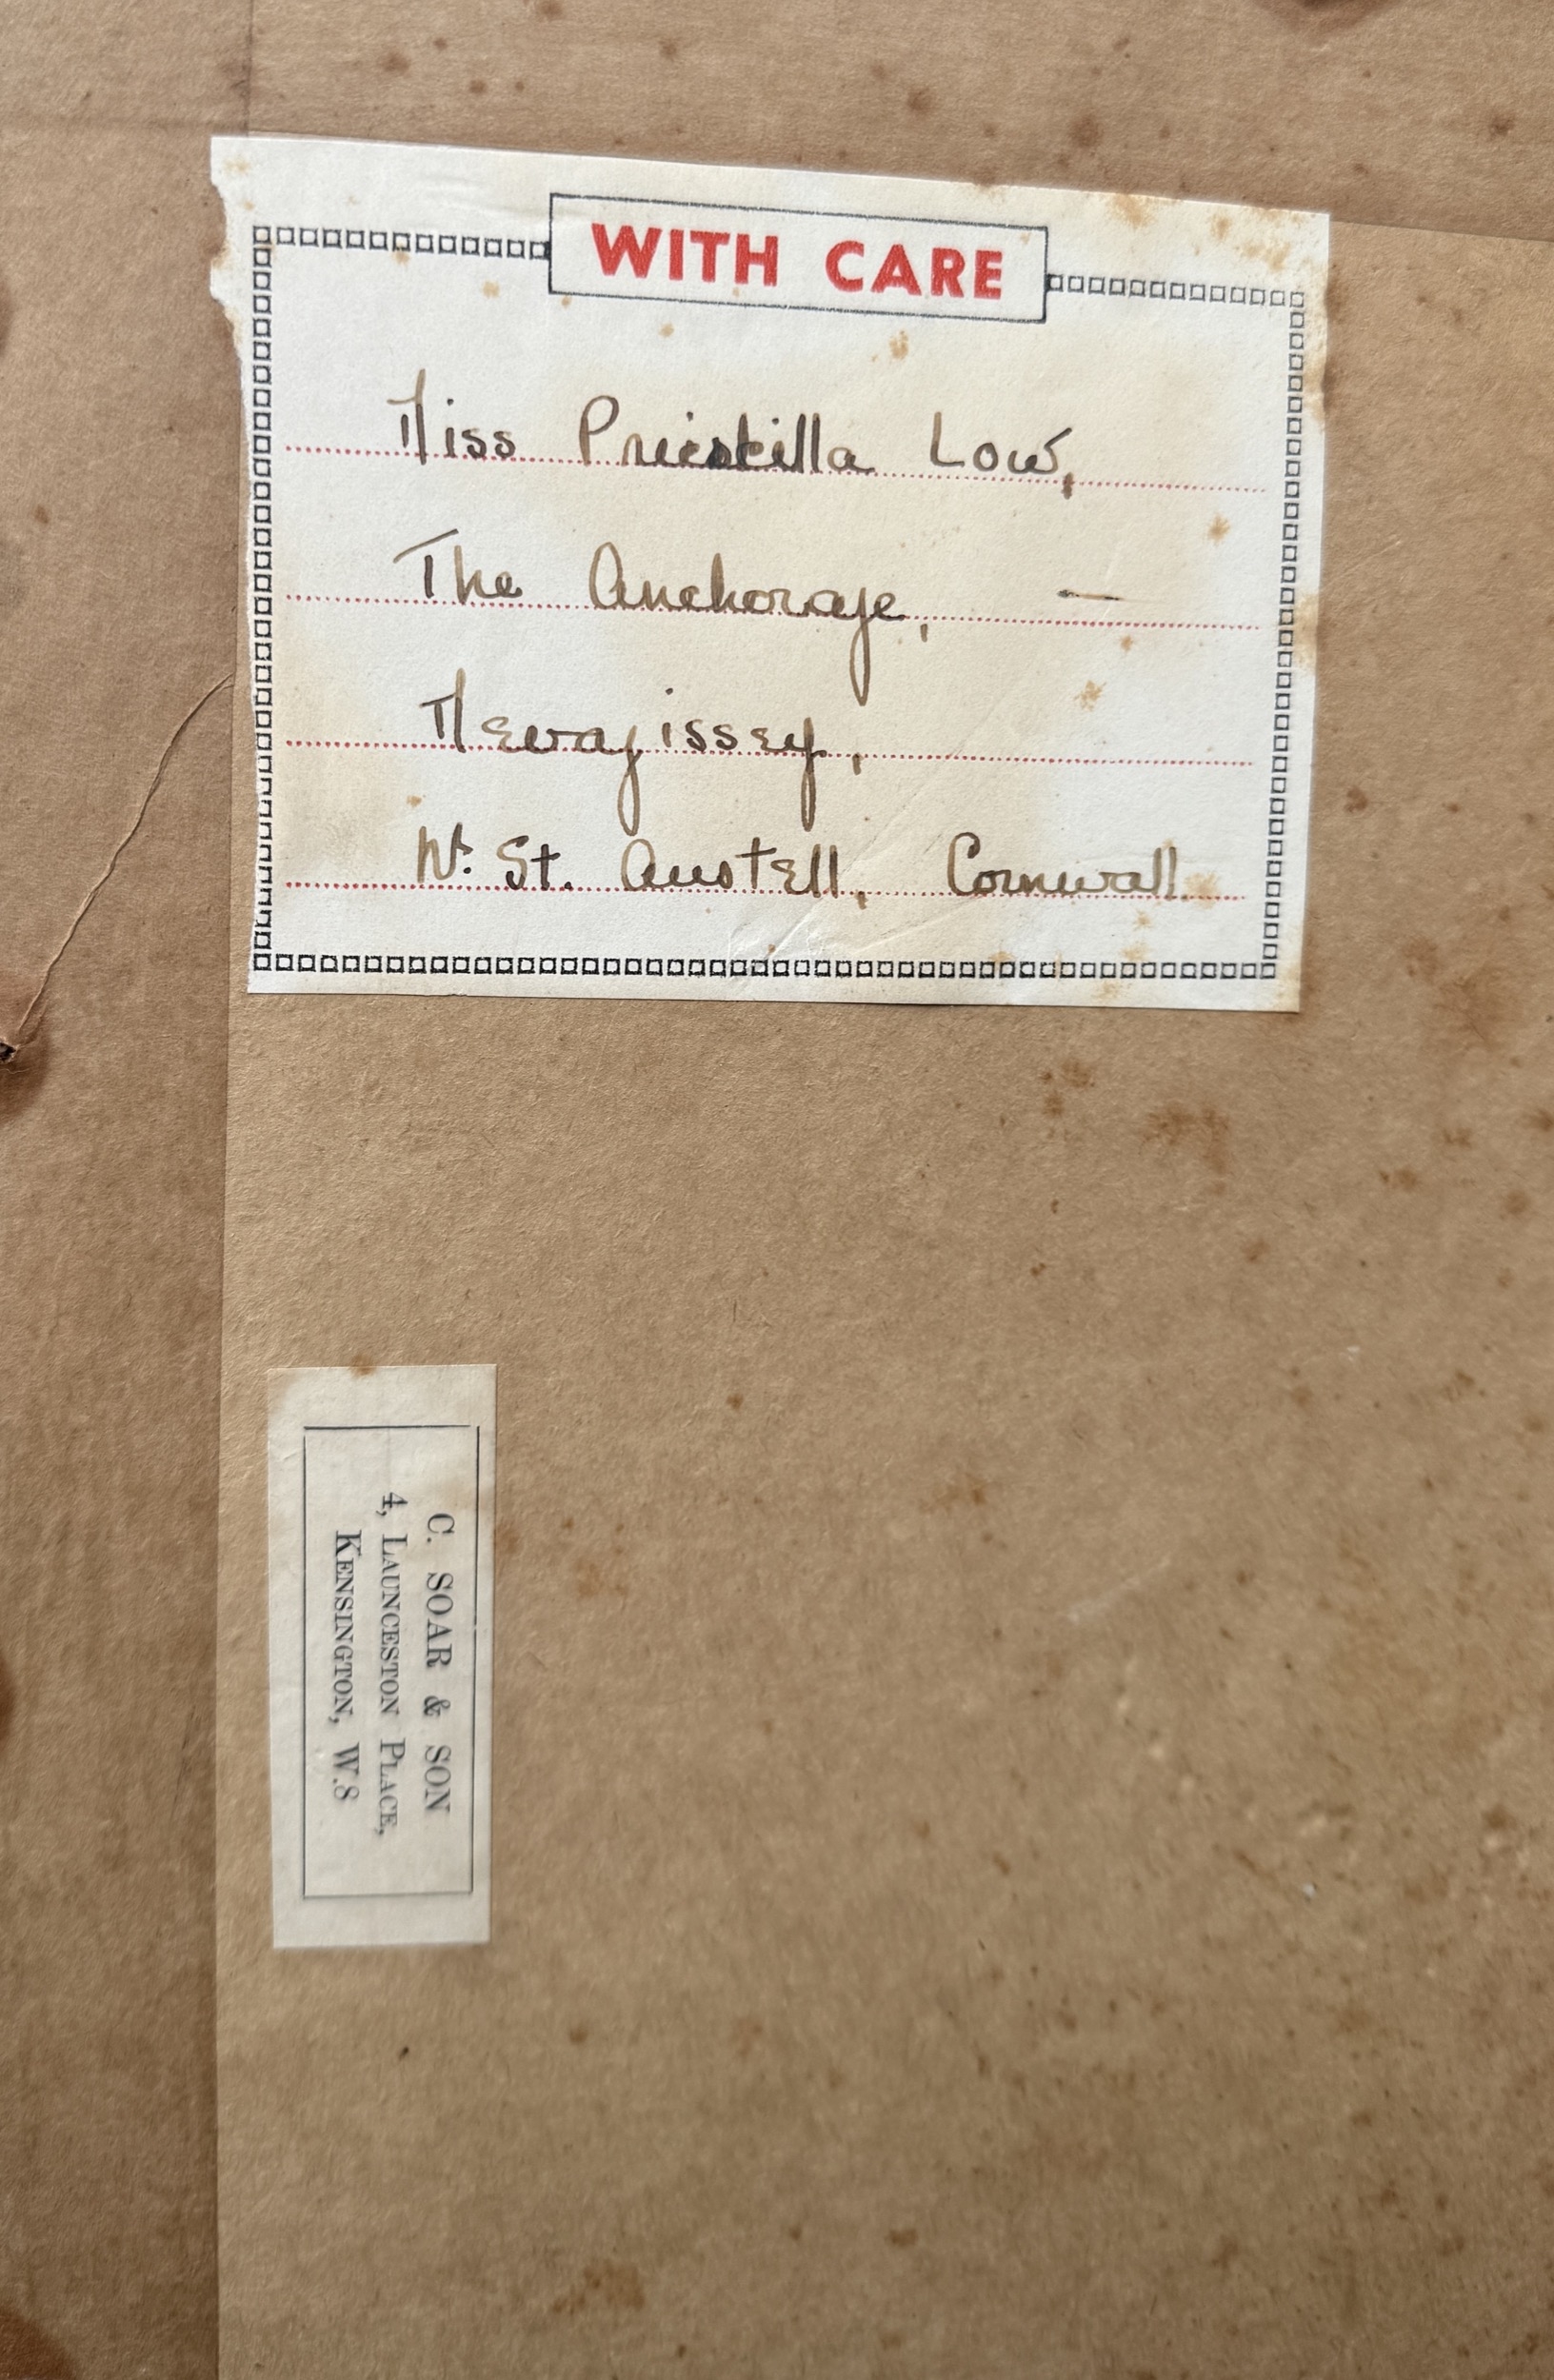 WITH CARE
Miss Priscilla Low,
The Anchorage, —
Mevagissey,
Nr. St. Austell, Cornwall.
C. SOAR & SON
4, LAUNCESTON PLACE,
KENSINGTON, W.8